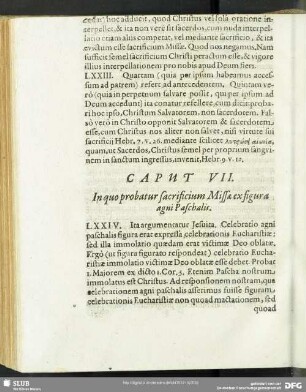 cedat hoc adducit, quod Christus vel sola oratione in-
terpellet, & ita non verè sit sacerdos, cum nuda interpel-
latio etiam aliis competat, vel mediante sacrificio, & ita
evictum esse sacrificium Missæ. Quod nos negamus. Nam
sufficit semel sacrificium Christi peractum esse, & vigore
illius interpellationem pro nobis apud Deum fieri.
LXXIII. Quartam (quia per ipsum habeamus acces-
sum ad patrem) refert ad antecedentem. Quintam ve-
rò (quia in perpetuum salvare possit, quiper ipsum ad
Deum accedunt) ita conatur refellere, cum dicit proba-
ri hoc ipso, Christum Salvatorem: non sacerdotem. Fal-
sò verò in Christo opponit Salvatorem & sacerdotem,
esse, cum Christus nos aliter non salvet, nisi virtute sui
sacrificij Hebr. 7. v. 26. mediante scilicet
quam, ut Sacerdos, Christus semel per proprium sangvi-
nem in sanctum ingressus, invenit, Hebr. 9. v. 12.
CAPUT VII.
In quo probatur sacrificium Missæ ex figura
agni Paschalis.
LXXIV. Ita argumentatur Jesuita. Celebratio agni
paschalis figura erat expressa, celebrationis Eucharistiæ:
sed illa immolatio quædam erat victimæ Deo oblatæ.
Ergò (ut figura figurato respondeat) celebratio Eucha-
ristiæ immolatio victimæ Deo oblatæ esse debet. Probat
1. Maiorem ex dicto 1. Cor. 5. Etenim Pascha nostrum,
immolatus est Christus. Ad responsionem nostram, quæ
celebrationem agni paschalis asserimus fuisse figuram,
celebrationis Eucharistiæ non quoad mactationem, sed
quoad
SLUB
DFG